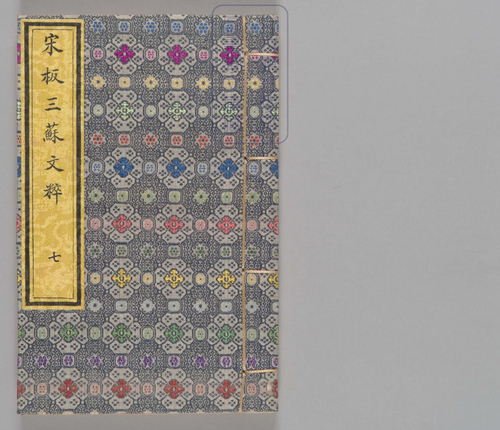 宋板三蘇文粹
七